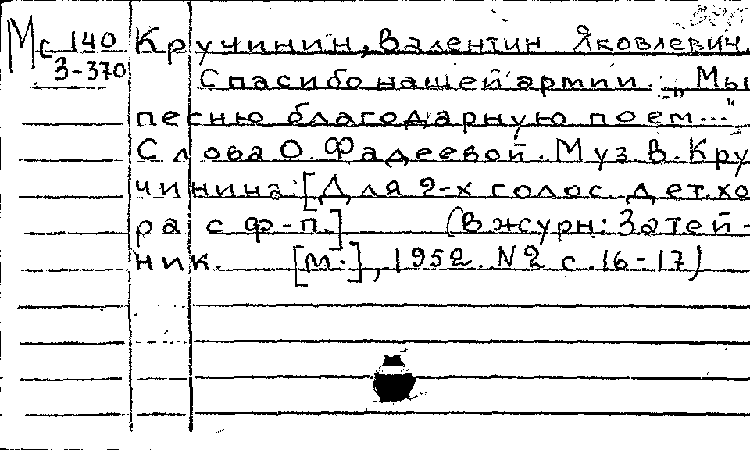 Мс 140 Кручинин, Валентин Яковлевич.
З-370 Спасибо нашей армии. „Мы
песню благодарную поем..."
Слова О. Фадеевой. Муз. В. Кру
чинина. [Для 2-х голос. дет. хо
ра с ф-п.] (В журн: Затей-
ник. [М.], 1952. № 2 с. 16-17)